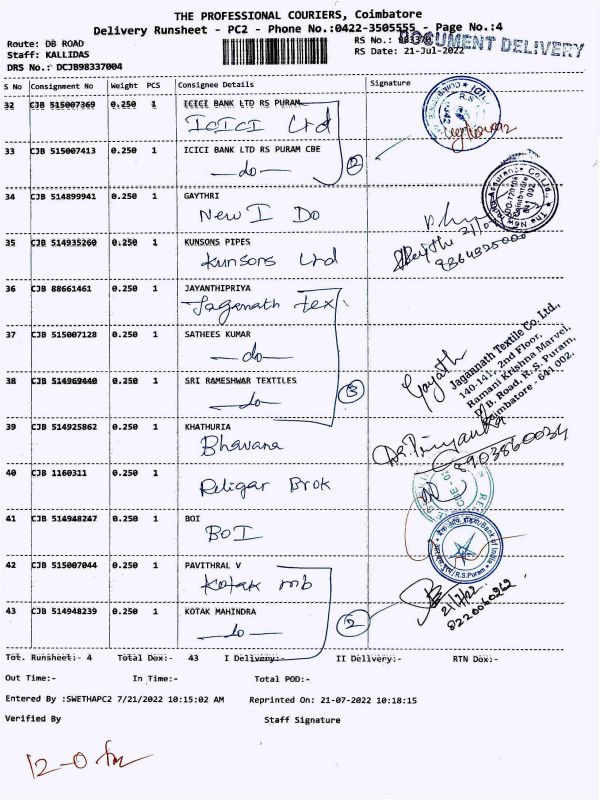 THE PROFESSIONAL COURIERS, Coimbatore
Delivery Runsheet - PC2 - Phone No.:0422-3505555 - Page No.:4
Route: DB ROAD
RS No.:
DOCUMENT DELIVERY
Staff: KALLIDAS
RS Date: 21-Jul-2022
DRS No.: DCJB98337004
S No Consignment No Weight PCS Consignee Details Signature
32 CJB 515007369 0.250 1 ICICI BANK LTD RS PURAM
ICICI Ltd
33 CJB 515007413 0.250 1 ICICI BANK LTD RS PURAM CBE
—do— 2
34 CJB 514899941 0.250 1 GAYTHRI
New I Do
The New India Assurance Co. Ltd.,
641 002
35 CJB 514935260 0.250 1 KUNSONS PIPES
Kunsons Ltd
36 CJB 88661461 0.250 1 JAYANTHIPRIYA
Jagannath tex
37 CJB 515007128 0.250 1 SATHEES KUMAR
—do—
Jagannath Textile Co. Ltd.,
140-141, 2nd Floor,
Ramani Krishna Marvel,
D/B. Road, R.S. Puram,
Coimbatore - 641 002.
38 CJB 514969440 0.250 1 SRI RAMESHWAR TEXTILES
—do— 3
Gayath
39 CJB 514925862 0.250 1 KHATHURIA
Bhavana
Priyanka
8903860034
40 CJB 1160311 0.250 1
Religar Brok
41 CJB 514948247 0.250 1 BOI
BOI
Bank of India
R.S.Puram
42 CJB 515007044 0.250 1 PAVITHRAL V
Kotak mb
43 CJB 514948239 0.250 1 KOTAK MAHINDRA
—do— 2
21/7/22
Tot. Runsheet:- 4 Total Dox:- 43 I Delivery:- II Delivery:- RTN Dox:-
Out Time:- In Time:- Total POD:-
Entered By :SWETHAPC2 7/21/2022 10:15:02 AM Reprinted On: 21-07-2022 10:18:15
Verified By Staff Signature